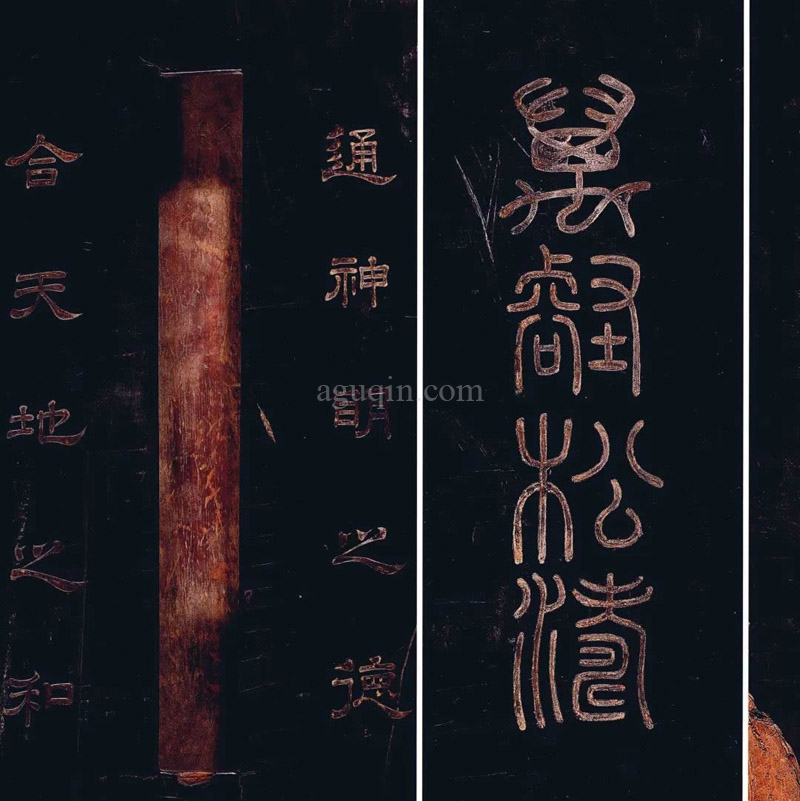 通神明之德
合天地之和
萬壑松濤
aguqin.com